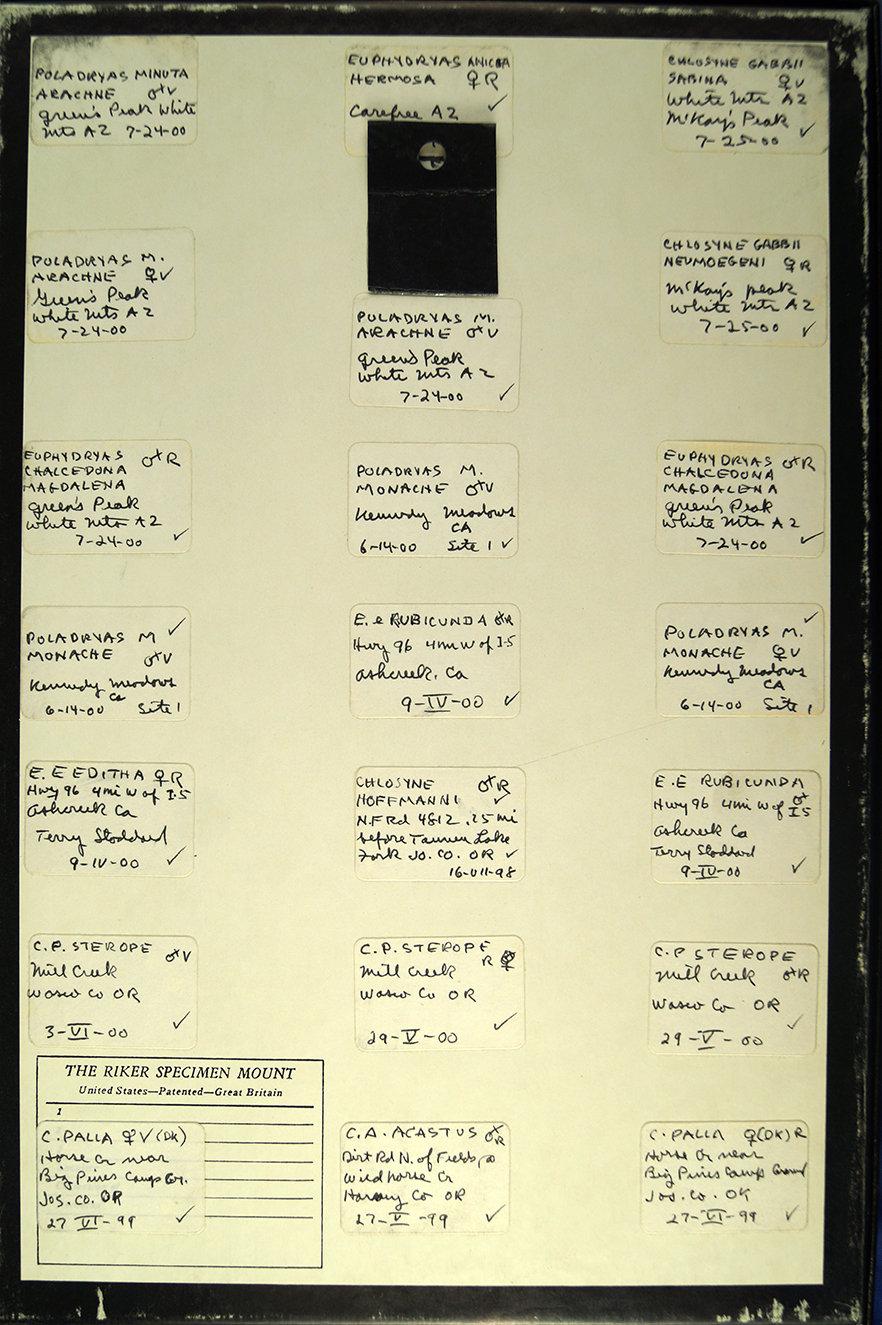 POLADRYAS MINUTA
ARACHNE ♂ V
green's Peak White
mts AZ 7-24-00
EUPHYDRYAS ANICIA
HERMOSA ♀ R
Carefree AZ ✓
CHLOSYNE GABBII
SABINA ♀ V
White mts AZ
McKay's Peak ✓
7-25-00
POLADRYAS M.
ARACHNE ♀ V
Green's Peak
White mts AZ
7-24-00
CHLOSYNE GABBII
NEUMOEGENI ♀ R
McKay's peak
White mts AZ
7-25-00 ✓
POLADRYAS M.
ARACHNE ♂ V
green's Peak
White mts AZ
7-24-00 ✓
EUPHYDRYAS ♂ R
CHALCEDONA
MAGDALENA
green's Peak
White mts AZ
7-24-00 ✓
POLADRYAS M.
MONACHE ♂ V
Kennedy Meadows
CA
6-14-00 Site 1 ✓
EUPHYDRYAS ♂ R
CHALCEDONA
MAGDALENA
green's Peak
White mts AZ
7-24-00 ✓
POLADRYAS M ✓
MONACHE ♂ V
Kennedy Meadows
Ca
6-14-00 Site 1
E. e RUBICUNDA ♂ R
Hwy 96 4mi W of I-5
Ashcreek, Ca
9-IV-00 ✓
✓
POLADRYAS M.
MONACHE ♀ V
Kennedy Meadows
CA
6-14-00 Site 1
E. E EDITHA ♀ R
Hwy 96 4mi W of I-5
Ashcreek Ca
Terry Stoddard
9-IV-00 ✓
CHLOSYNE ♂ R
HOFFMANNI ✓
N.F Rd 4812 .25 mi
before Tannen Lake
Fork JO. CO. OR ✓
16-VII-98
E.E RUBICUNDA
Hwy 96 4mi W of ♂ I5
Ashcreek Ca
Terry Stoddard
9-IV-00 ✓
C.P. STEROPE ♂ V
Mill Creek
Wasco Co OR
3-VI-00 ✓
C.P. STEROPE
Mill Creek R ♀
Wasco Co OR
29-V-00 ✓
C.P STEROPE
Mill Creek ♂ R
Wasco Co OR
29-V-00 ✓
THE RIKER SPECIMEN MOUNT
United States—Patented—Great Britain
1
C. PALLA ♀ V (DK)
Horse Cr near
Big Pines Camp Gr.
Jos. Co. OR
27 VI-99 ✓
C. A. ACASTUS ♂ R
Dirt Rd N. of Fields,
Wildhorse Cr
Harney Co OR
27-V-99 ✓
C. PALLA ♀ (DK) R
Horse Cr near
Big Pines Camp Ground
Jos. Co. OR
27-VI-99 ✓